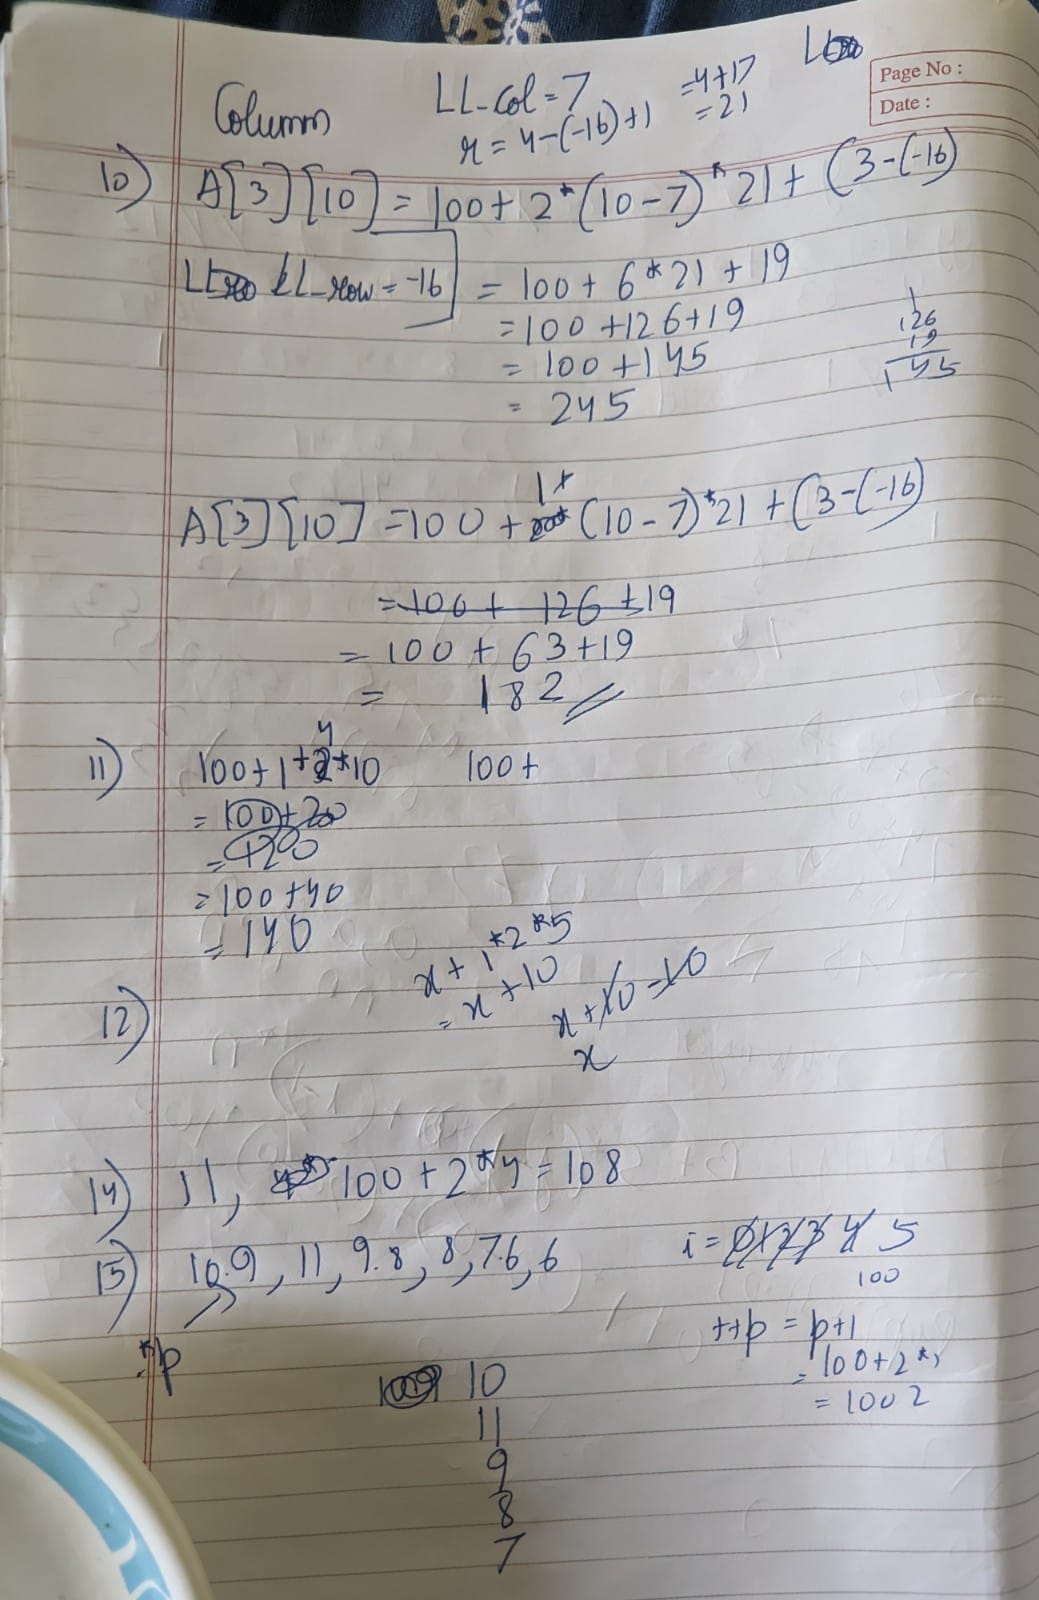 Page No :
Date :
Column
LL-Col = 7
r = 4-(-16)+1
= 4+17
= 21
10) A[3][10] = 100 + 2*(10-7)*21 + (3-(-16)
LL-row = -16
= 100 + 6*21 + 19
= 100 + 126 + 19
= 100 + 145
= 245
1
126
19
145
1*
A[3][10] = 100 + (10-7)*21 + (3-(-16)
= 100 + 126 + 19
= 100 + 63 + 19
= 182
4
11) 100+1*2*10 100+
= 100+20
= 120
= 100+40
= 140
x + 1*2*5
= x + 10
x+10-10
x
12)
14) 11, 100+2*4 = 108
15) 10.9, 11, 9.8, 8, 7.6, 6
i = 0 1 2 3 4 5
100
*p
++p = p+1
= 100+2*1
= 1002
10
11
9
8
7